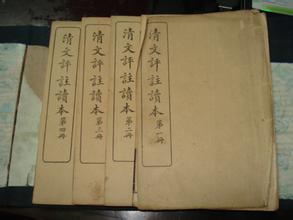 清文評註讀本第一冊
清文評註讀本第二冊
清文評註讀本第三冊
清文評註讀本第四冊